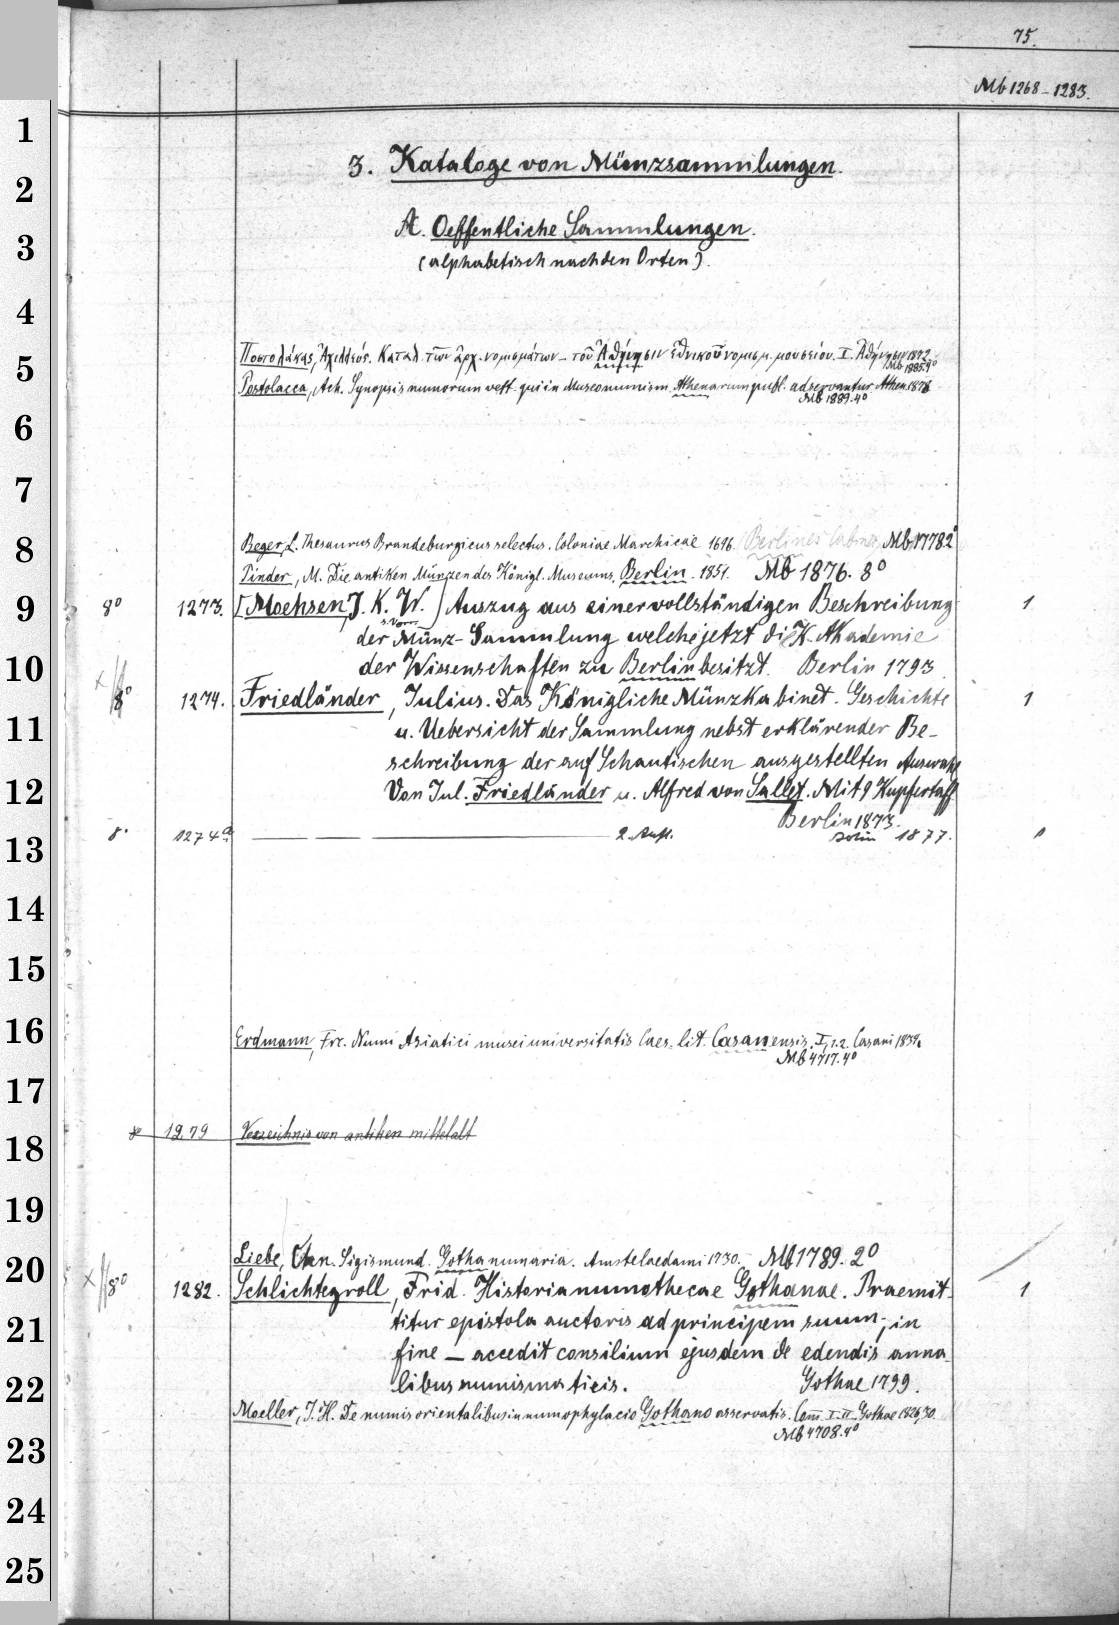 75.
Mb 1268-1283.
3. Kataloge von Münzsammlungen.
A. Oeffentliche Sammlungen.
(alphabetisch nach den Orten).
Ποστολάκας, Ἀχιλλεύς. Καταλ. τῶν ἀρχ. νομισμάτων - τοῦ Ἀθήνησιν ἐθνικοῦ νομισμ. μουσείου. I. Ἀθήνησιν 1872
Mb 1885.4°
Postolacca, Ach. Synopsis numorum vett. qui in Museo numism. Athenarum publ. adservantur. Athen. 1878
Mb 1889.4°
Beger, L. Thesaurus Brandeburgicus selectus. Coloniae Marchicae 1696. Berlines Mb 1778 2°
Pinder, M. Die antiken Münzen des Königl. Museums, Berlin. 1851. Mb 1876. 8°
8° 1273. [Moehsen, J. K. W.] Auszug aus einer vollständigen Beschreibung 1
der Münz-Sammlung welche jetzt die K. Akademie
der Wissenschaften zu Berlin besitzt. Berlin 1793
8° 1274. Friedländer, Julius. Das Königliche Münzkabinet. Geschichte 1
u. Uebersicht der Sammlung nebst erklärender Be-
schreibung der auf Schautischen ausgestellten Auswahl
Von Jul. Friedländer u. Alfred von Sallet. Mit 9 Kupfertaff
Berlin 1873.
8° 1274a. — — — 2. Aufl. Berlin 1877. 1
Erdmann, Fr. Numi Asiatici musei universitatis Caes. lit. Casanensis. I, 1.2. Casani 1834.
Mb 4717.4°
8° 1279 Verzeichnis von antiken mittelalt
Liebe, Chr. Sigismund. Gotha numaria. Amstelaedami 1730. Mb 1789. 2°
8° 1282. Schlichtegroll, Frid. Historia numothecae Gothanae. Praemit- 1
titur epistola auctoris ad principem suum; in
fine — accedit consilium ejusdem de edendis anna-
libus numismaticis. Gothae 1799.
Moeller, J. H. De numis orientalibus in numophylacio Gothano asservatis. Com. I-II. Gothae 1826,30.
Mb 4708.4°
1
2
3
4
5
6
7
8
9
10
11
12
13
14
15
16
17
18
19
20
21
22
23
24
25